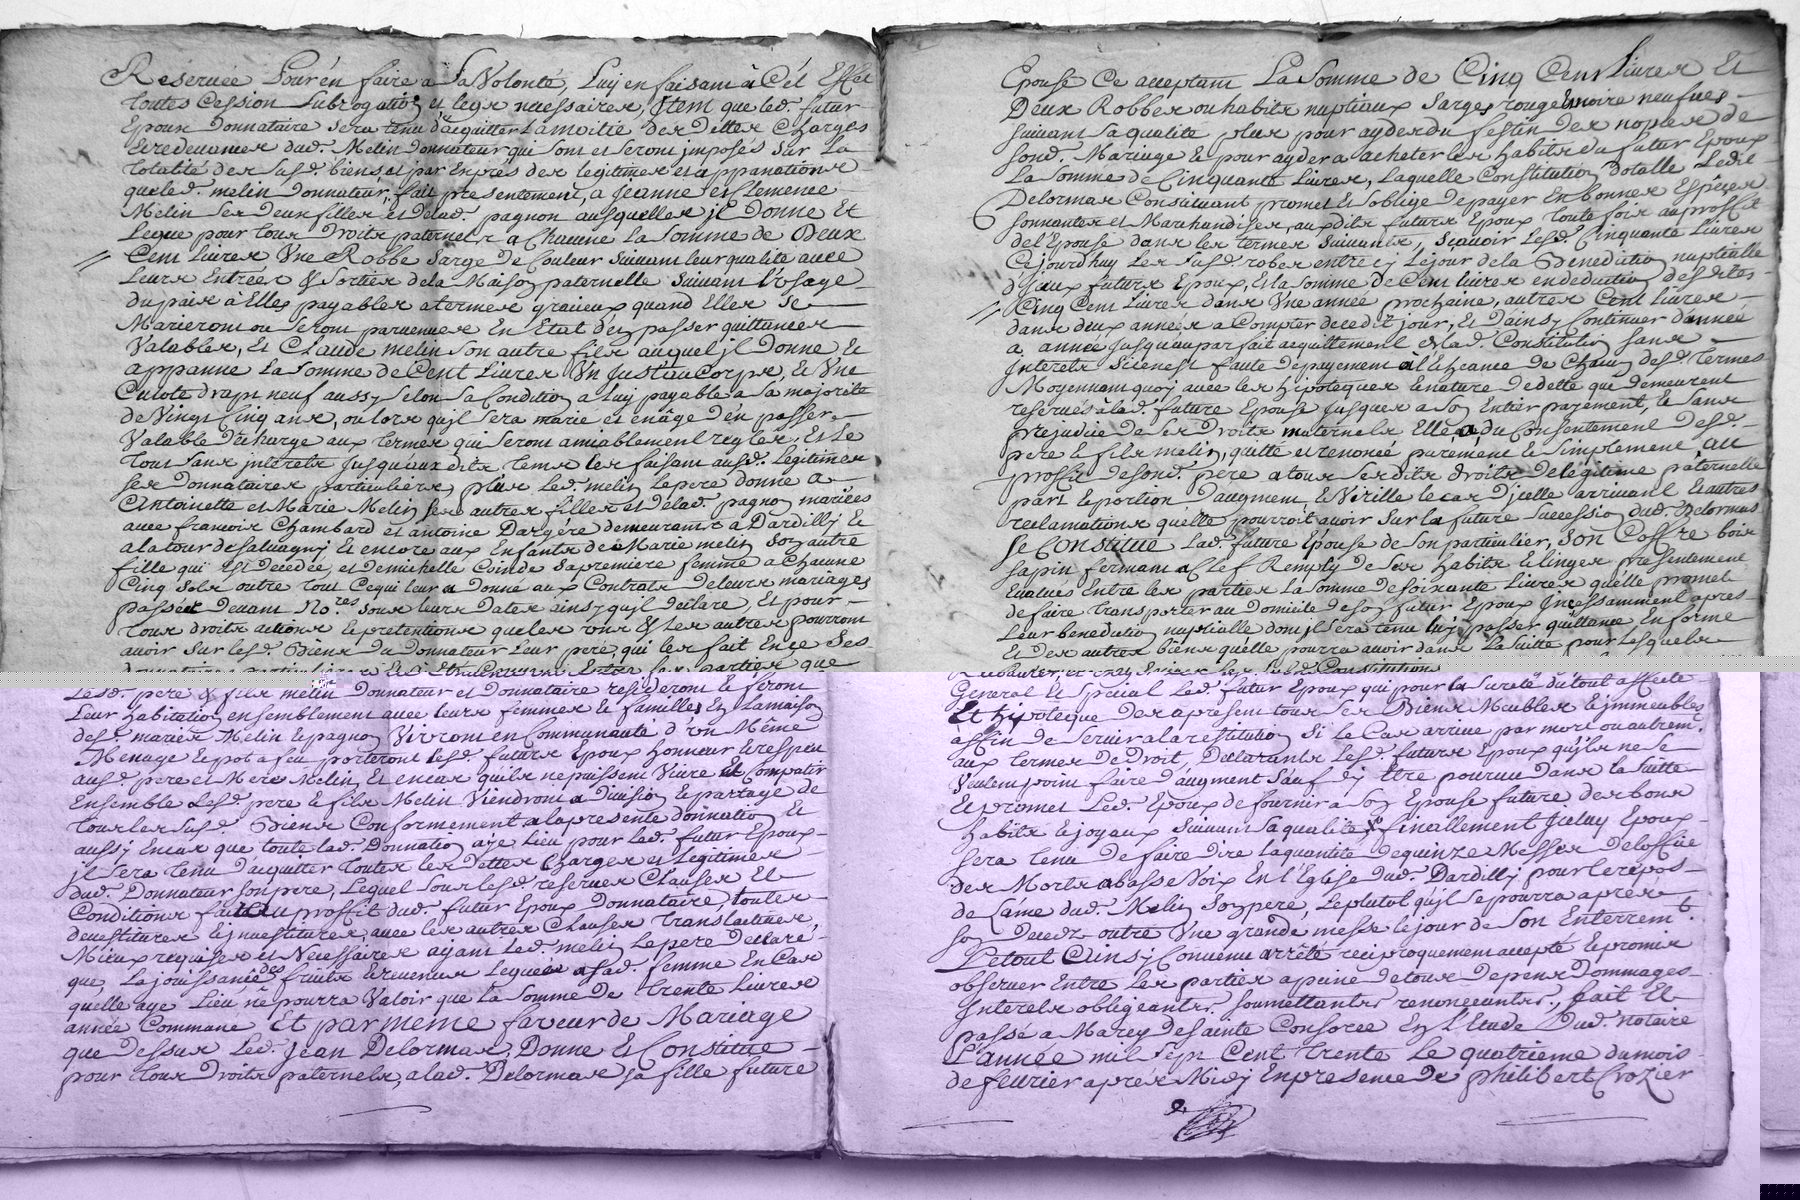 Reservée Pour én faire a Sa Volonté, Luy en faisant à Cét Effet
toutes Cession Subrogation et legs necessaires, Jtem que led. futur
Epoux Donnataire sera tenu d'acquitter La moitié des Dettes Charges
Et redevances dud. Melin Donnateur qui sont et seront jmposés sur La
totalité des susd. biens et par Exprés des legitimes et appanations
que led. melin Donnateur, fait presentement, a Jeanne et Clemence
Melin ses deux filles et de lad. pagnon ausquelles jl Donne Et
Legue pour tous Droits paternels a Chacune La somme de Deux
Cent Livres Vne Robbe sarge de Couleur suivant leur qualité avec
Leurs Entrées & Sorties dela Maison paternelle suivant l'osage
du païs à Elles payables a termes gracieux quand Elles se
Marieront ou seront parvenues En Etat d'en passer quittances
Valables, Et Claude melin son autre fils auquel jl Donne Et
appanne La somme de Cent Livres Vn Justaucorps, Et Vne
Culote drap neuf aussy selon sa Condition a Luy payable a sa majorité
de Vingt Cinq ans, ou lors qu'jl sera marié et en âge d'en passer
Valable décharge aux termes qui seront amiablement regles, Et le
tout sans jnterets jusqu'aux dits tems les faisant ausd. Legitimes
ses Donnataires particuliers, plus led. melin le pere donne a
Antoinette et Marie Melin ses autres filles et de lad. pagnon mariées
avec francois Chambard et antoine Dargére demeurants à Dardilly Et
a la tour de salvagny Et encore aux Enfants de Marie melin son autre
fille qui Est decedée, et de michelle Coinde sa premiere femme a Chacune
Cinq sols outre tout Ce qui leur a Donné aux Contrats de leurs mariages
passés devant No.res sous leurs Dates ainsy qu'jl declare, Et pour
tous droits actions Et pretentions que les vns & les autres pourront
avoir sur lesd. Biens du Donnateur Leur pere, qui les fait En ce ses
Lesd. pere & fils melin Donnateur et Donnataire residéront Et feront
Leur habitation ensemblement avec leurs femmes Et familles En La maison
desd. mariés Melin Et pagnon Vivront en Communauté d'vn Même
Menage Et pot a feu porteront Lesd. futurs Epoux honneur Et respect
ausd. pere et Mere Melin, Et encas qu'ils ne puissent Vivre Et Compatir
Ensemble Lesd. pere & fils Melin Viendront a Division Et partage de
tous les susd. Biens Conformement a la presente donnation Et
aussy Encas que toute lad. Donnation aye Lieu pour led. futur Epoux
jl sera tenu d'acquitter toutes les dettes Charges et Legitimes
dud. Donnateur son pere, Lequel sous lesd. reserves Clauses Et
Conditions fait au proffit dud. futur Epoux Donnataire, toutes
devestitures Et jnvestitures avec les autres Clauses translatives
Mieux requises et Necessaires ayant led. melin Le pere declaré
que La jouissance des fruits Et revenus Leguée a sad. femme En Cas
quelle aye Lieu ne pourra Valoir que La somme De trente Livres
année Commune Et par meme faveur de Mariage
que dessus Led. Jean Delormas, Donne Et Constitue
pour tous Droits paternels, a lad. Delormas sa fille future
Epouse Ce acceptant La somme de Cinq Cent Livres Et
Deux Robbes ou habits nuptiaux sarges rouge Et noire neufves
suivant sa qualité plus pour ayder du festin des nopces de
sond. Mariage Et pour ayder a acheter les habits du futur Epoux
La somme de Cinquante Livres, Laquelle Constitution dotalle Ledit
Delormas Constituant promet Et s'oblige de payer En bonnes Espéces
sonnantes et Marchandises, aux dits futurs Epoux toute fois au proffit
de l'Epouse dans les termes suivants, sçavoir Lesd. Cinquante Livres
Cejourdhuy Les susd. robes entre cy Lejour dela Benediction nuptialle
desd. futurs Epoux, Et La somme de Cent livres en deduction desdites
Cinq Cent Livres dans Vne année prochaine, autres Cent livres
dans deux années a Compter de cedit jour, Et d'ainsy Continuer d'année
a année jusqu'au parfait acquittement de lad. Constitution sans
jnterets si ce n'est faute de payement a l'Echeance de Chacun desd. termes
Moyennant quoy avec les hipoteques Et nature de dette que demeurent
reservés à lad. future Epouse jusques a son Entier payement, Et sans
prejudice de ses Droits maternels Elle a du Consentement desd.
pere Et fils melin, quitté et renoncé purement Et simplement, au
proffit de sond. pere a tous ses dits droits de legitime paternelle
part Et portion d'augment, Et Virille le cas d'jcelle arrivant Et autres
reclamations qu'elle pourroit avoir sur la future succession dud. Delormas
Se Constitue Lad. future Epouse de son particulier, son Coffre bois
sapin fermant a Clef Remply de ses habits Et linges presentement
Evalués Entre les parties La somme de soixante Livres qu'elle promet
de faire transporter au Domicile de son futur Epoux jncessamment apres
Leur benediction nuptialle dont jl sera tenu luy passer quittance En forme
Et des autres biens quelle pourra avoir dans La suitte pour Lesquels
General et Special Led. futur Epoux qui pour la sureté du tout affecte
Et hipoteque Des apresent tous ses Biens Meubles Et jmmeubles
affin de servir a la restitution si Le Cas arrive par mort ou autrem.t
aux termes de Droit, Declarants Lesd. futurs Epoux qu'jls ne se
Veulent point faire d'augment sauf d'y Etre pourvu dans la suitte
Et promet Led. Epoux de fournir a son Epouse future des bons
habits Et joyaux suivant sa qualité, & finallement Jceluy Epoux
sera tenu de faire dire la quantité de quinze Messes de l'office
des Morts a basse Voix En L'Eglise dud. Dardilly pour le repos
de L'ame dud. Melin son pere, Le plutot qu'jl se pourra aprés
son Decedz outre Vne grande messe le jour de son Enterrem.t
Le tout Ainsy Convenu arrété reciproquement accepté Et promis
observer Entre Les parties a peine de tous Depens Dommages
Jnterets obligeants, soumettants, renonceants, fait Et
passé a Marcy de sainte Consorce En L'Etude Dud. notaire
L'année mil sept Cent trente Le quatrieme du mois
de fevrier aprés Midy En presence De philibert Crozier